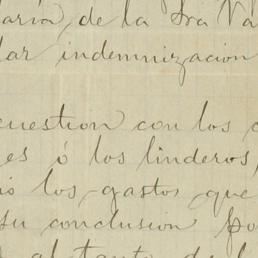 aria, de la Sra Va
dar indemnizacion
cuestion con los
es ó los linderos,
ió los gastos que
su conclusion po
al tanto de l